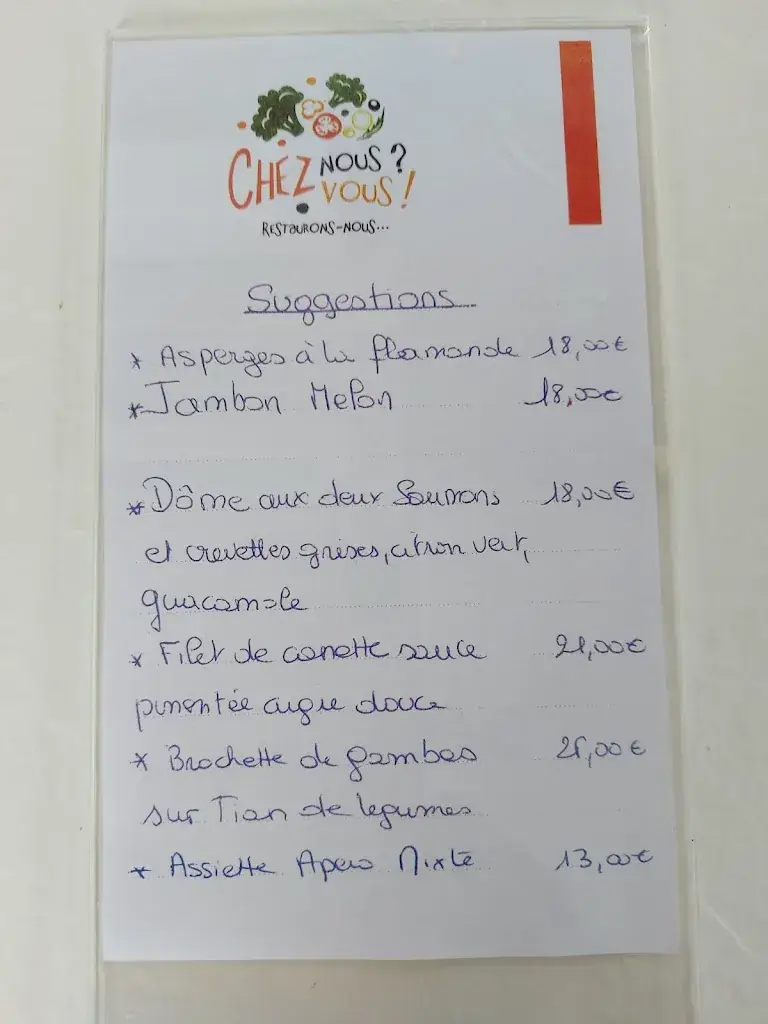 CHEZ NOUS ?
VOUS !
RESTAURONS-NOUS...
Suggestions
* Asperges à la flamande 18,00€
* Jambon Melon 18,00€
* Dôme aux deux Saumons 18,00€
et crevettes grises, citron vert,
guacamole
* Filet de canette sauce 21,00€
pimentée aigre douce
* Brochette de gambas
sur Tian de legumes
* Assiette Apero Mixte 13,00€